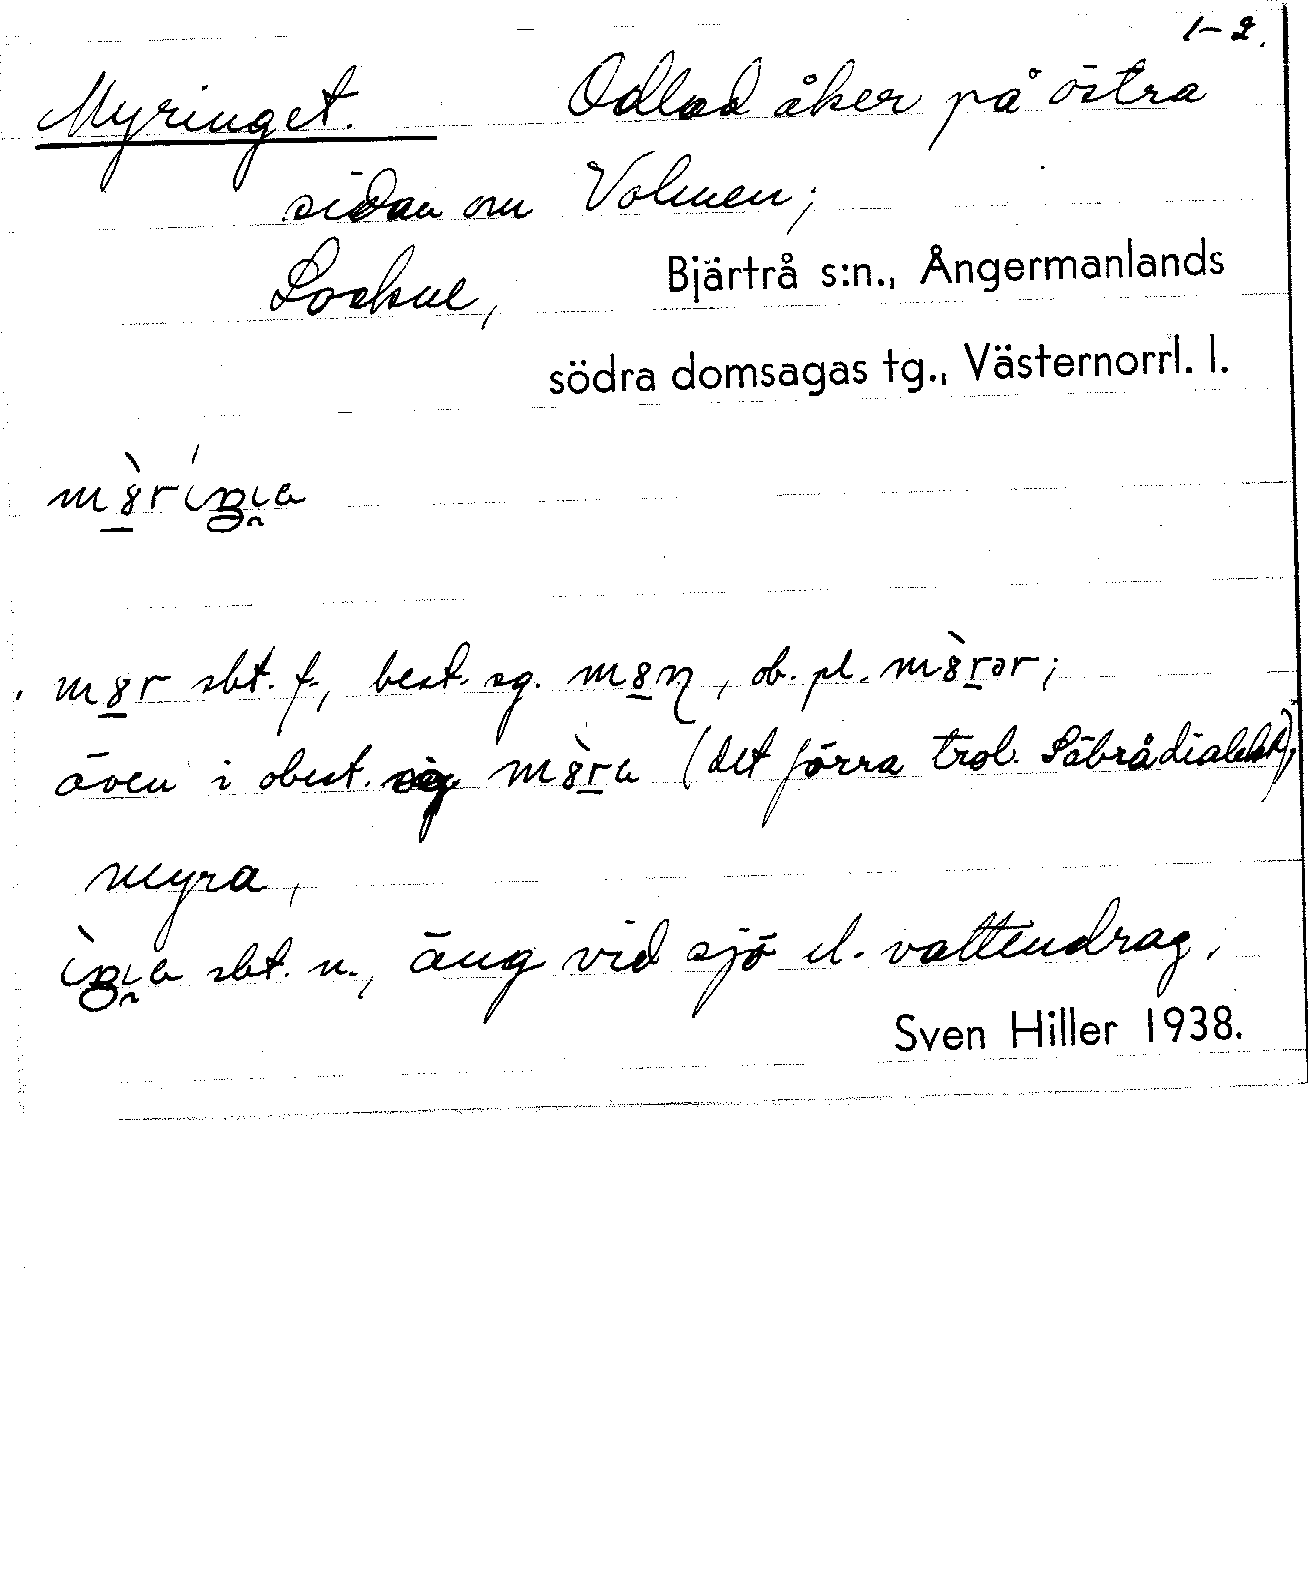 1-2.
Myringet. Odlad åker på östra
sidan om Volmen;
Lockne, Bjärtrå s:n., Ångermanlands
södra domsagas tg., Västernorrl. l.
sbt. f., best. sg. , ob. pl.
även i obest. sg (det förra trol. Säbrådialekt),
myra,
sbt. n., äng vid sjö el. vattendrag.
Sven Hiller 1938.